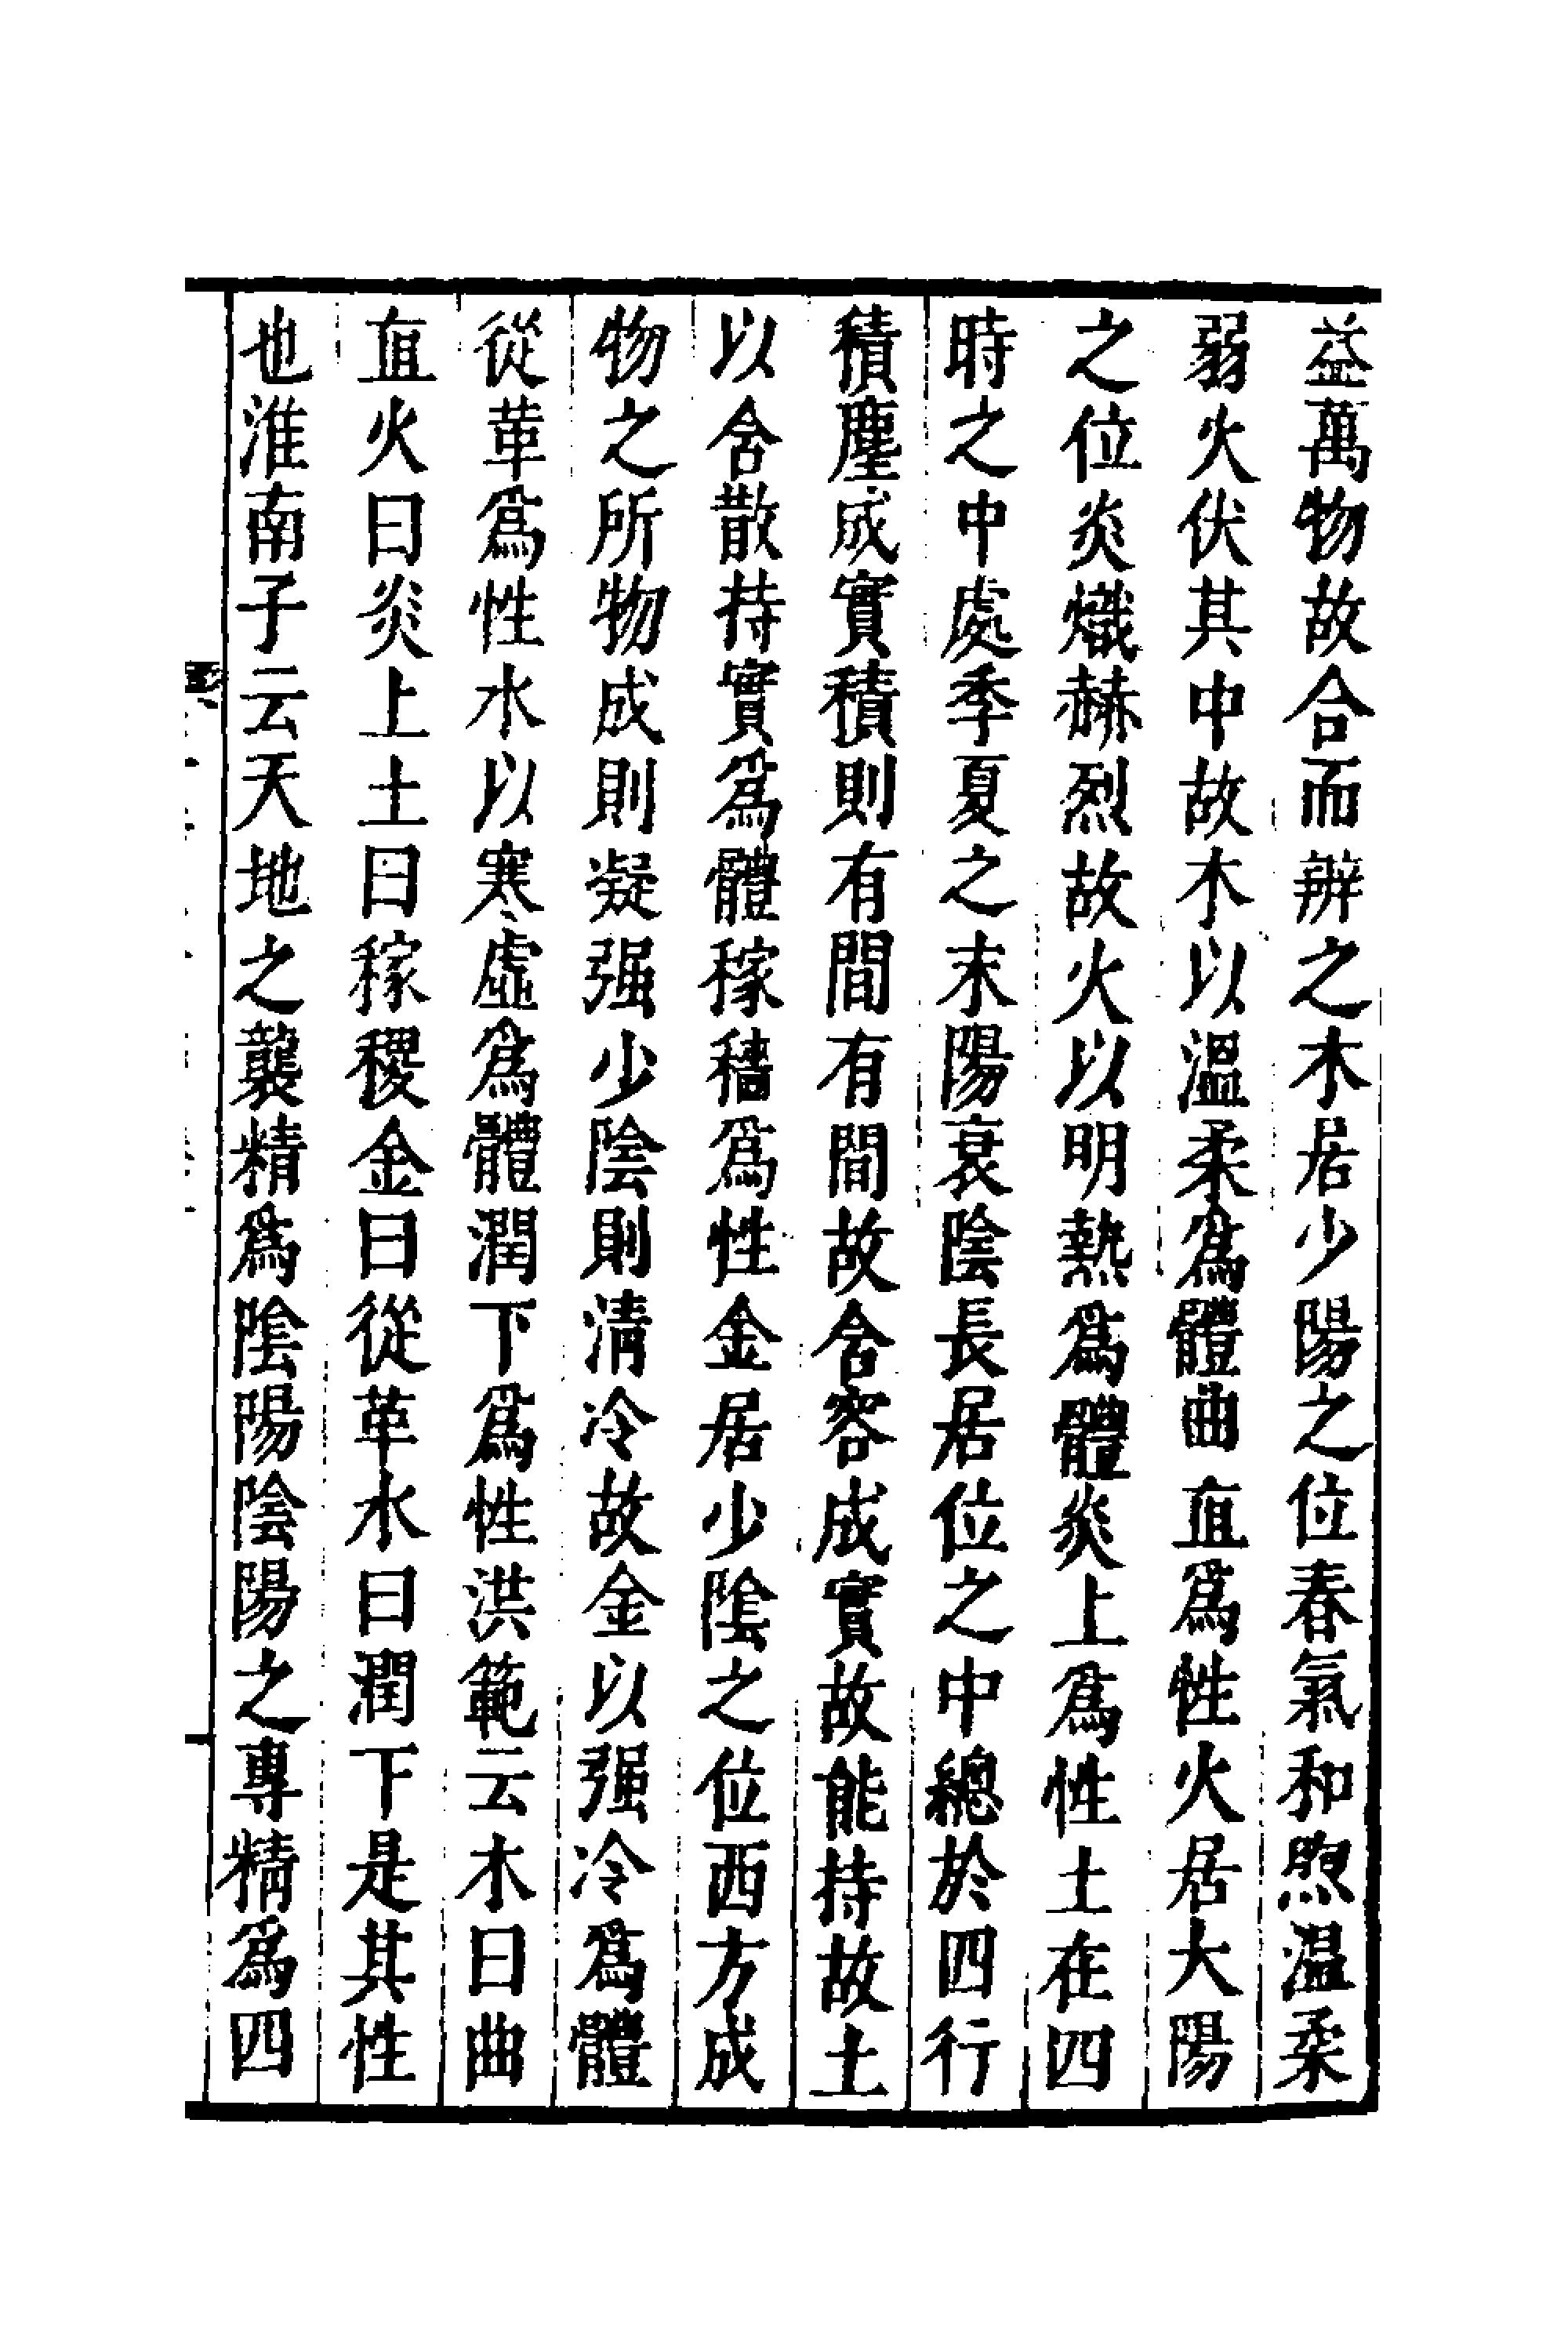 益萬物故合而辨之木居少陽之位春氣和煦温柔
弱火伏其中故木以温柔爲體曲直爲性火居大陽
之位炎熾赫烈故火以明熱爲體炎上爲性土在四
時之中處季夏之末陽衰陰長居位之中總於四行
積塵成實積則有間有間故含容成實故能持故土
以含散持實爲體稼穡爲性金居少陰之位西方成
物之所物成則凝强少陰則清冷故金以强冷爲體
從革爲性水以寒虛爲體潤下爲性洪範云木曰曲
直火曰炎上土曰稼稷金曰從革水曰潤下是其性
也淮南子云天地之襲精爲陰陽陰陽之專精爲四